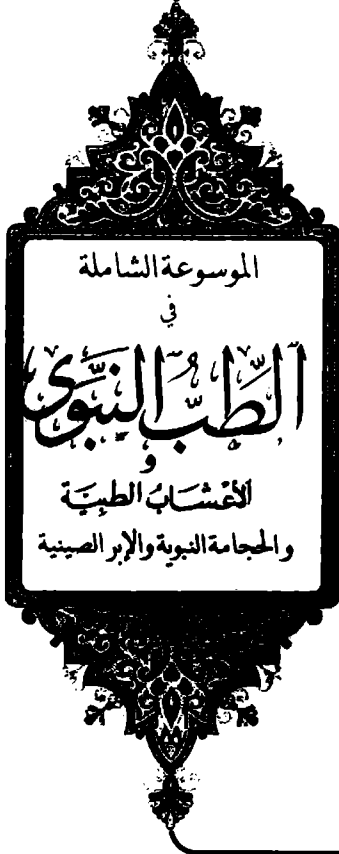 الموسوعة الشاملة
في
الطِّبِّ النَّبَوِي
و
الأعْشَابُ الطبيَّة
والحجامة النبوية والإبر الصينية